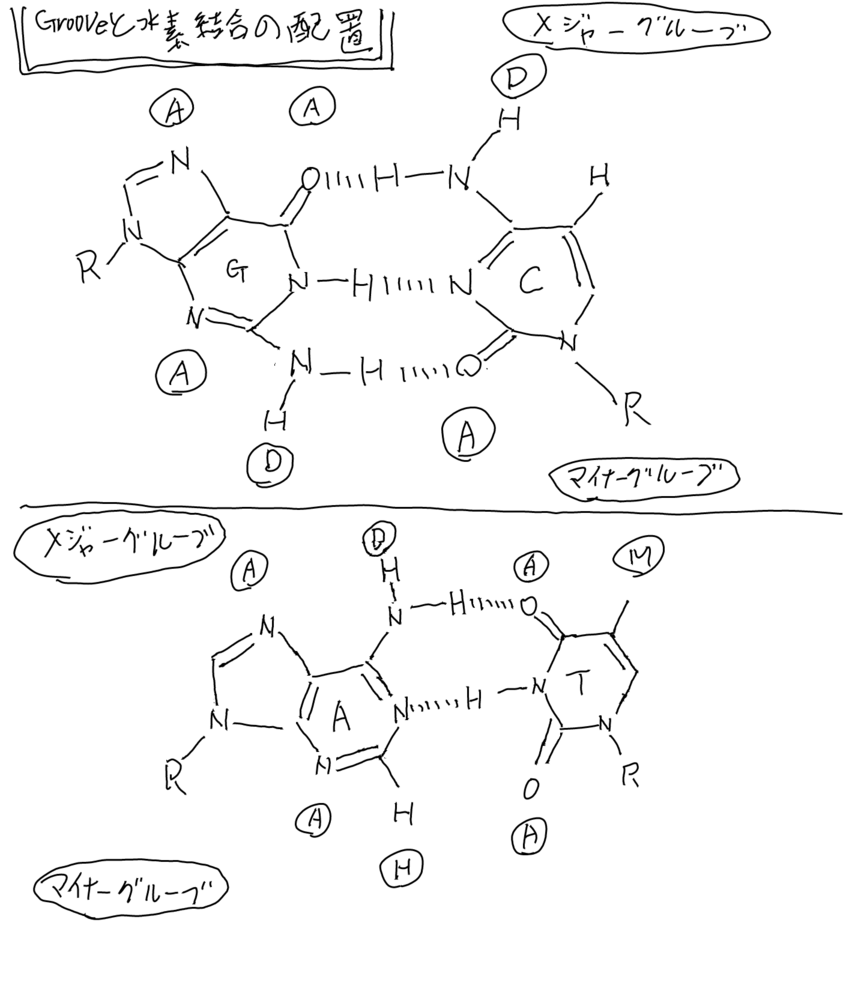 Grooveと水素結合の配置
メジャーグルーブ
D
A A H
N O H N H
N
R G N H N C
N N
A N H O R
H A
D
マイナーグルーブ
メジャーグルーブ
D A M
A H
N H O
N
N A N H N T
N N
R O R
A H A
H
マイナーグルーブ